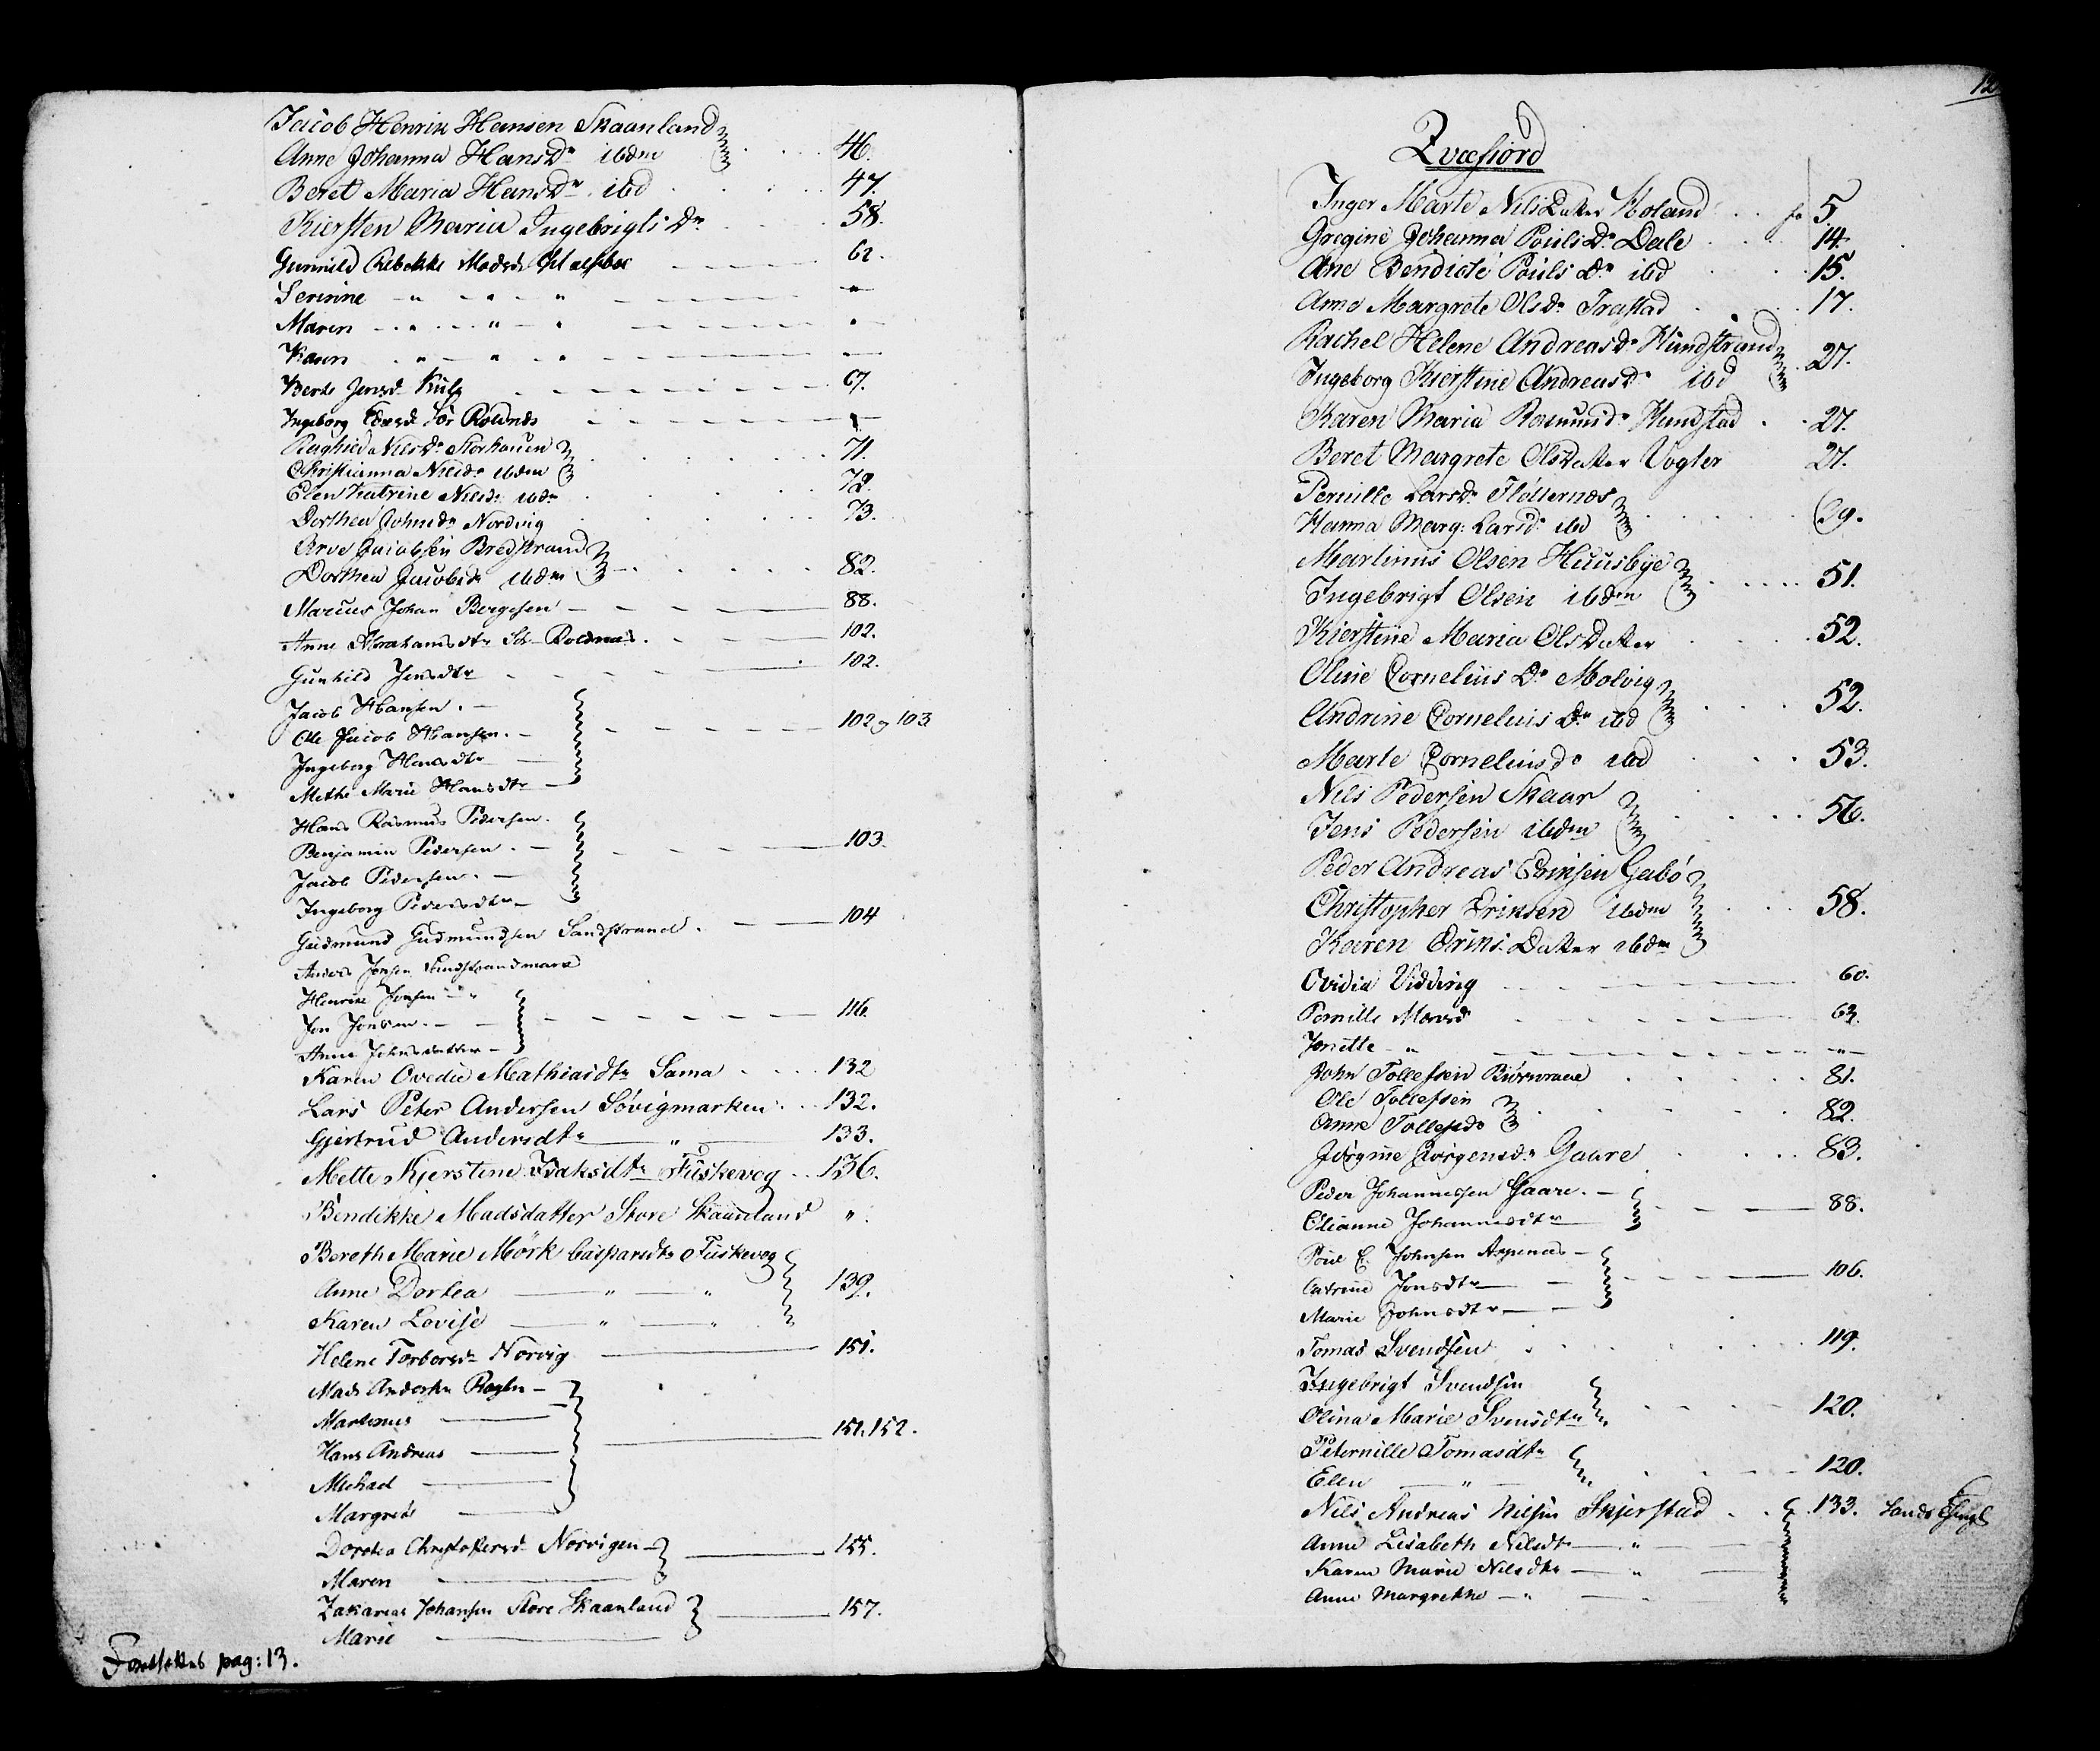 Jacob Henrik Hansen Skaanland
Anne Johanna Hansdr ibdm 46.
Beret Maria Hansdr ibd 47.
Kiersten Maria Ingebrigtsdr 58.
Gunnild Rebekke Madsd 62.
Serinne — " — " — "
Maren — " — " — "
Karen " — " — "
Berte Jensd 67.
Ingeborg Sör Rolnæs
Raghild Nilsdr Storhaúen
Christianna Nilsdr ibdm 71.
Elen Katrine Nilsdr ibdm 72.
Dorthea Johnsdr Nordvig 73.
Arve Jacobsen Bredstrand
Dorthea Jacobsdr ibdm 82.
Marcus Johan Bergesen 88.
Anne Abrahamsdtr Rolnæs 102.
Gúnhild Jensdtr 102.
Jacob Hansen
Ole Jacob Hansen 102 og 103
Ingeborg Hansdtr
Methe Marie Hansdtr
Hans Rasmus Pedersen
Benjamin Pedersen 103.
Jacob Pedersen
Ingeborg Pedersdtr
Gúdmund Gúdmúndsen Sandstrand 104
Anders Jonsen Sandstrandmark
Henrik Jonsen — "
Jon Jonsen 116.
Anne Johnsdatter
Karen Ovedie Mathiasdtr Sama 132
Lars Peter Andersen Sövigmarken 132.
Gjertrúd Andersdtr " 133.
Mette Kjerstine Isaksdtr Fúskevog 136.
Bendikke Madsdatter Store Skaanland "
Bereth Marie Mörk Caspersdtr Fúskevog
Anne Dortea " " 139.
Karen Lovise " "
Helene Torborsdr Norvig 151.
Mads Andersen
Martinus
Hans Andreas 151.152.
Michael
Margrete
Dorthea Christofersdr Norvigen 155.
Maren
Zakarias Johansen Store Skaanland 157.
Marie
Fortsættes pag: 13.
12
Qvæfiord
Inger Marte NilsDatter Moland 5
Gregine Johanna Poúlsdr Dale 14.
Ane Bendicte Poúls Dr ibd 15.
Anne Margrete Olsdr Trastad 17.
Rachel Helene Andreasdr Húndstrand
Ingeborg Kierstine Andreasdr ibd 27.
Karen Maria Rasmusdr Hundstad 27.
Beret Margrete OlsDatter Vogter 27.
Pernille Larsdr Flötternæs
Hanna Marg: Larsdr ibd 39.
Martinus Olsen Húúsbÿe
Ingebrigt Olsen ibdm 51.
Kierstine Maria OlsDatter 52.
Oline Cornelius Dr Molvig
Andrine Cornelius Dr ibd 52.
Marte Corneliusdr ibd 53.
Nils Pedersen Skaar
Jens Pedersen ibdm 56.
Peder Andreas Eriksen Gabö
Christopher Eriksen ibdm 58.
Karen Eriks Datter ibdm
Ovidia Vidding 60.
Pernille 63.
Jonette — "
John Tollefsen 81.
Ole Tollefsen
Anne Tollefsdr 82.
Jörgine Jörgensdr Gaare 83.
Peder Johannessen Gaare
Elianne Johannesdtr 88.
Poúl E. Johnsen Aspenæs
Catrine Jonsdtr 106.
Marie Johnsdtr
Tomas Svendsen 119.
Ingebrigt Svendsen
Olina Marie Svensdtr 120.
Peternille Tomasdtr
Elen " 120.
Nils Andreas Nilsen Skjerstad 133.
Anne Lisabeth Nilsdtr "
Karen Marie Nilsdtr "
Anne Margrethe "